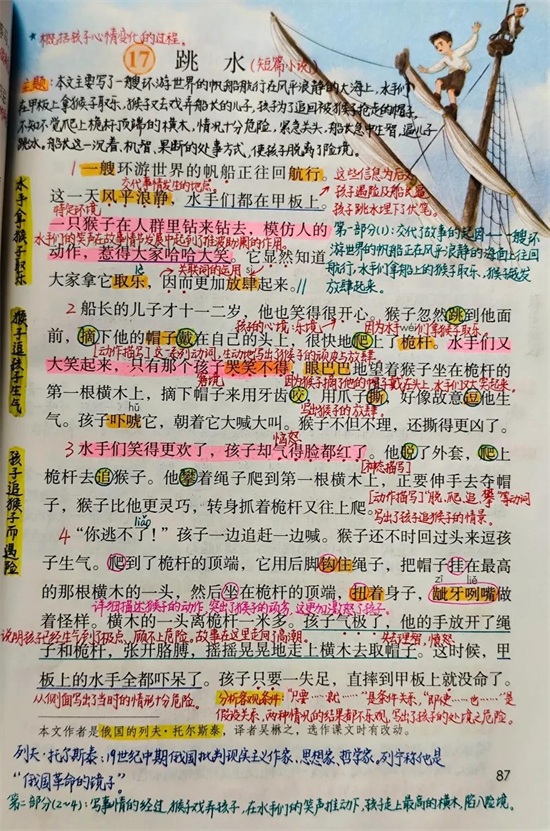 ★概括孩子心情变化的过程。
17 跳水(短篇小说)
主题:本文主要写了一艘环游世界的帆船航行在风平浪静的大海上,水手们
在甲板上拿猴子取乐,猴子又去戏弄船长的儿子,孩子为了追回被猴子抢走的帽子,
不知不觉爬上桅杆顶端的横木,情况十分危险,紧急关头,船长急中生智,逼儿子
跳水。船长这一沉着、机智、果断的处事方式,使孩子脱离了险境。
1一艘环游世界的帆船正往回航行。
交代事情发生的地点。
这些信息为后文
孩子遇险及船长逼
孩子跳水埋下了伏笔。
这一天风平浪静,水手们都在甲板上。
特定环境
一只猴子在人群里钻来钻去,模仿人的
水手们的笑声在故事情节发展中起到了推波助澜的作用。
动作,惹得大家哈哈大笑。它显然知道
关联词的运用
大家拿它取乐,因而更加放肆起来。//
第一部分(1):交代了故事的起因——一艘环
游世界的帆船正在风平浪静的海面上往回
航行,水手们拿船上的猴子取乐,猴子越发
放肆起来。
水手拿猴子取乐
2 船长的儿子才十一二岁,他也笑得很开心。猴子忽然跳到他面
孩子的心境:乐境
因为水手们拿猴子取乐
wéi
前,摘下他的帽子戴在自己的头上,很快地爬上了桅杆。水手们又
[动作描写]这一系列动词,生动地写出了猴子的顽皮与放肆
大笑起来,只有那个孩子哭笑不得,眼巴巴地望着猴子坐在桅杆的
窘境
因为猴子摘了他的帽子戴在头上,水手们又大笑起来。
第一根横木上,摘下帽子来用牙齿咬,用爪子撕,好像故意逗他生
写出猴子的放肆。
hǔ
气。孩子吓唬它,朝着它大喊大叫。猴子不但不理,还撕得更凶了。
猴子追孩子生气
恼怒
3水手们笑得更欢了,孩子却气得脸都红了。他脱了外套,爬上
[神态描写]
桅杆去追猴子。他攀着绳子爬到第一根横木上,正要伸手去夺帽
[动作描写]“脱、爬、追、攀”等动词
子,猴子比他更灵巧,转身抓着桅杆又往上爬。
写出了孩子追猴子的情景。
孩子追猴子而遇险
liǎo
4“你逃不了!”孩子一边追赶一边喊。猴子还不时回过头来逗孩
子生气。爬到了桅杆的顶端,它用后脚钩住绳子,把帽子挂在最高
zī liě
的那根横木的一头,然后坐在桅杆的顶端,扭着身子,龇牙咧嘴做
详细描述猴子的动作,突出了猴子的顽劣,这更加激怒了孩子。
着怪样。横木的一头离桅杆一米多。孩子气极了,他的手放开了绳
说明孩子已经生气到了极点,顾不上危险。故事在这里走向了高潮。
失去理智,愤怒
子和桅杆,张开胳膊,摇摇晃晃地走上横木去取帽子。这时候,甲
板上的水手全都吓呆了。孩子只要一失足,直摔到甲板上就没命了。
从侧面写出了当时的情形十分危险。
分析客观条件:“只要……就……”是条件关系,“即使……也……”是
假设关系,两种情况的结果都不乐观,写出了孩子的处境之危险。
本文作者是俄国的列夫·托尔斯泰,译者吴楙之,选作课文时有改动。
列夫·托尔斯泰:19世纪中期俄国批判现实主义作家、思想家、哲学家。列宁称他是
“俄国革命的镜子”。
87
第二部分(2~4):写事情的经过,猴子戏弄孩子,在水手们的笑声推动下,孩子走上最高的横木,陷入险境。